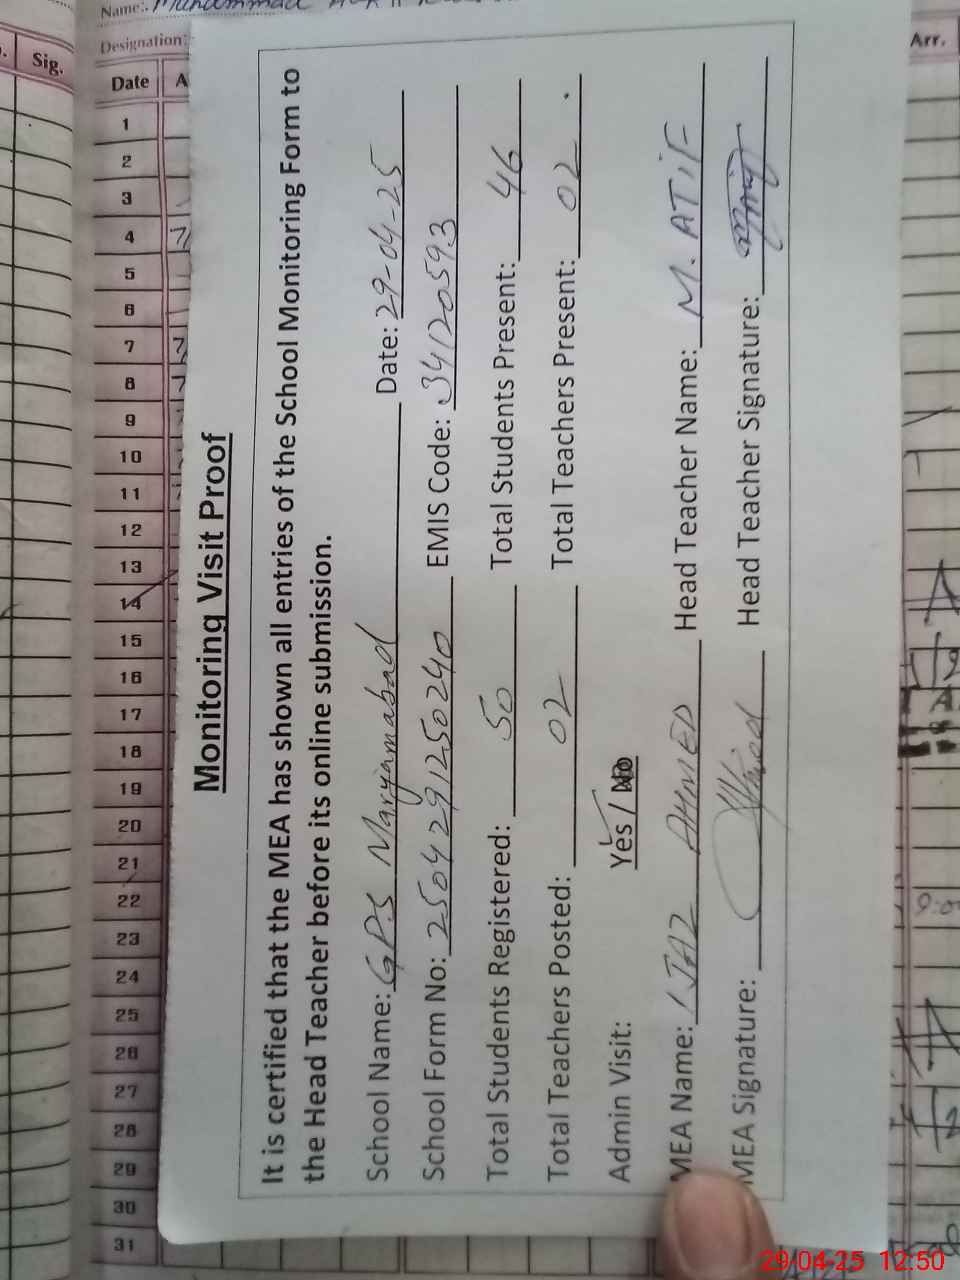 Monitoring Visit Proof
It is certified that the MEA has shown all entries of the School Monitoring Form to
the Head Teacher before its online submission.
School Name: GPS Maryamabad Date: 29-04-25
School Form No: 2504291250240 EMIS Code: 34120593
Total Students Registered: 50 Total Students Present: 46
Total Teachers Posted: 02 Total Teachers Present: 02
Admin Visit: Yes / No
MEA Name: IJAZ AHMED Head Teacher Name: M. ATIF
MEA Signature: Head Teacher Signature:
Sig.
Name:- Muhammad
Designation:
Date A
Arr.
1
2
3
4
5
6
7
8
9
10
11
12
13
14
15
16
17
18
19
20
21
22
23
24
25
26
27
28
29
30
31
29-04-25 12:50